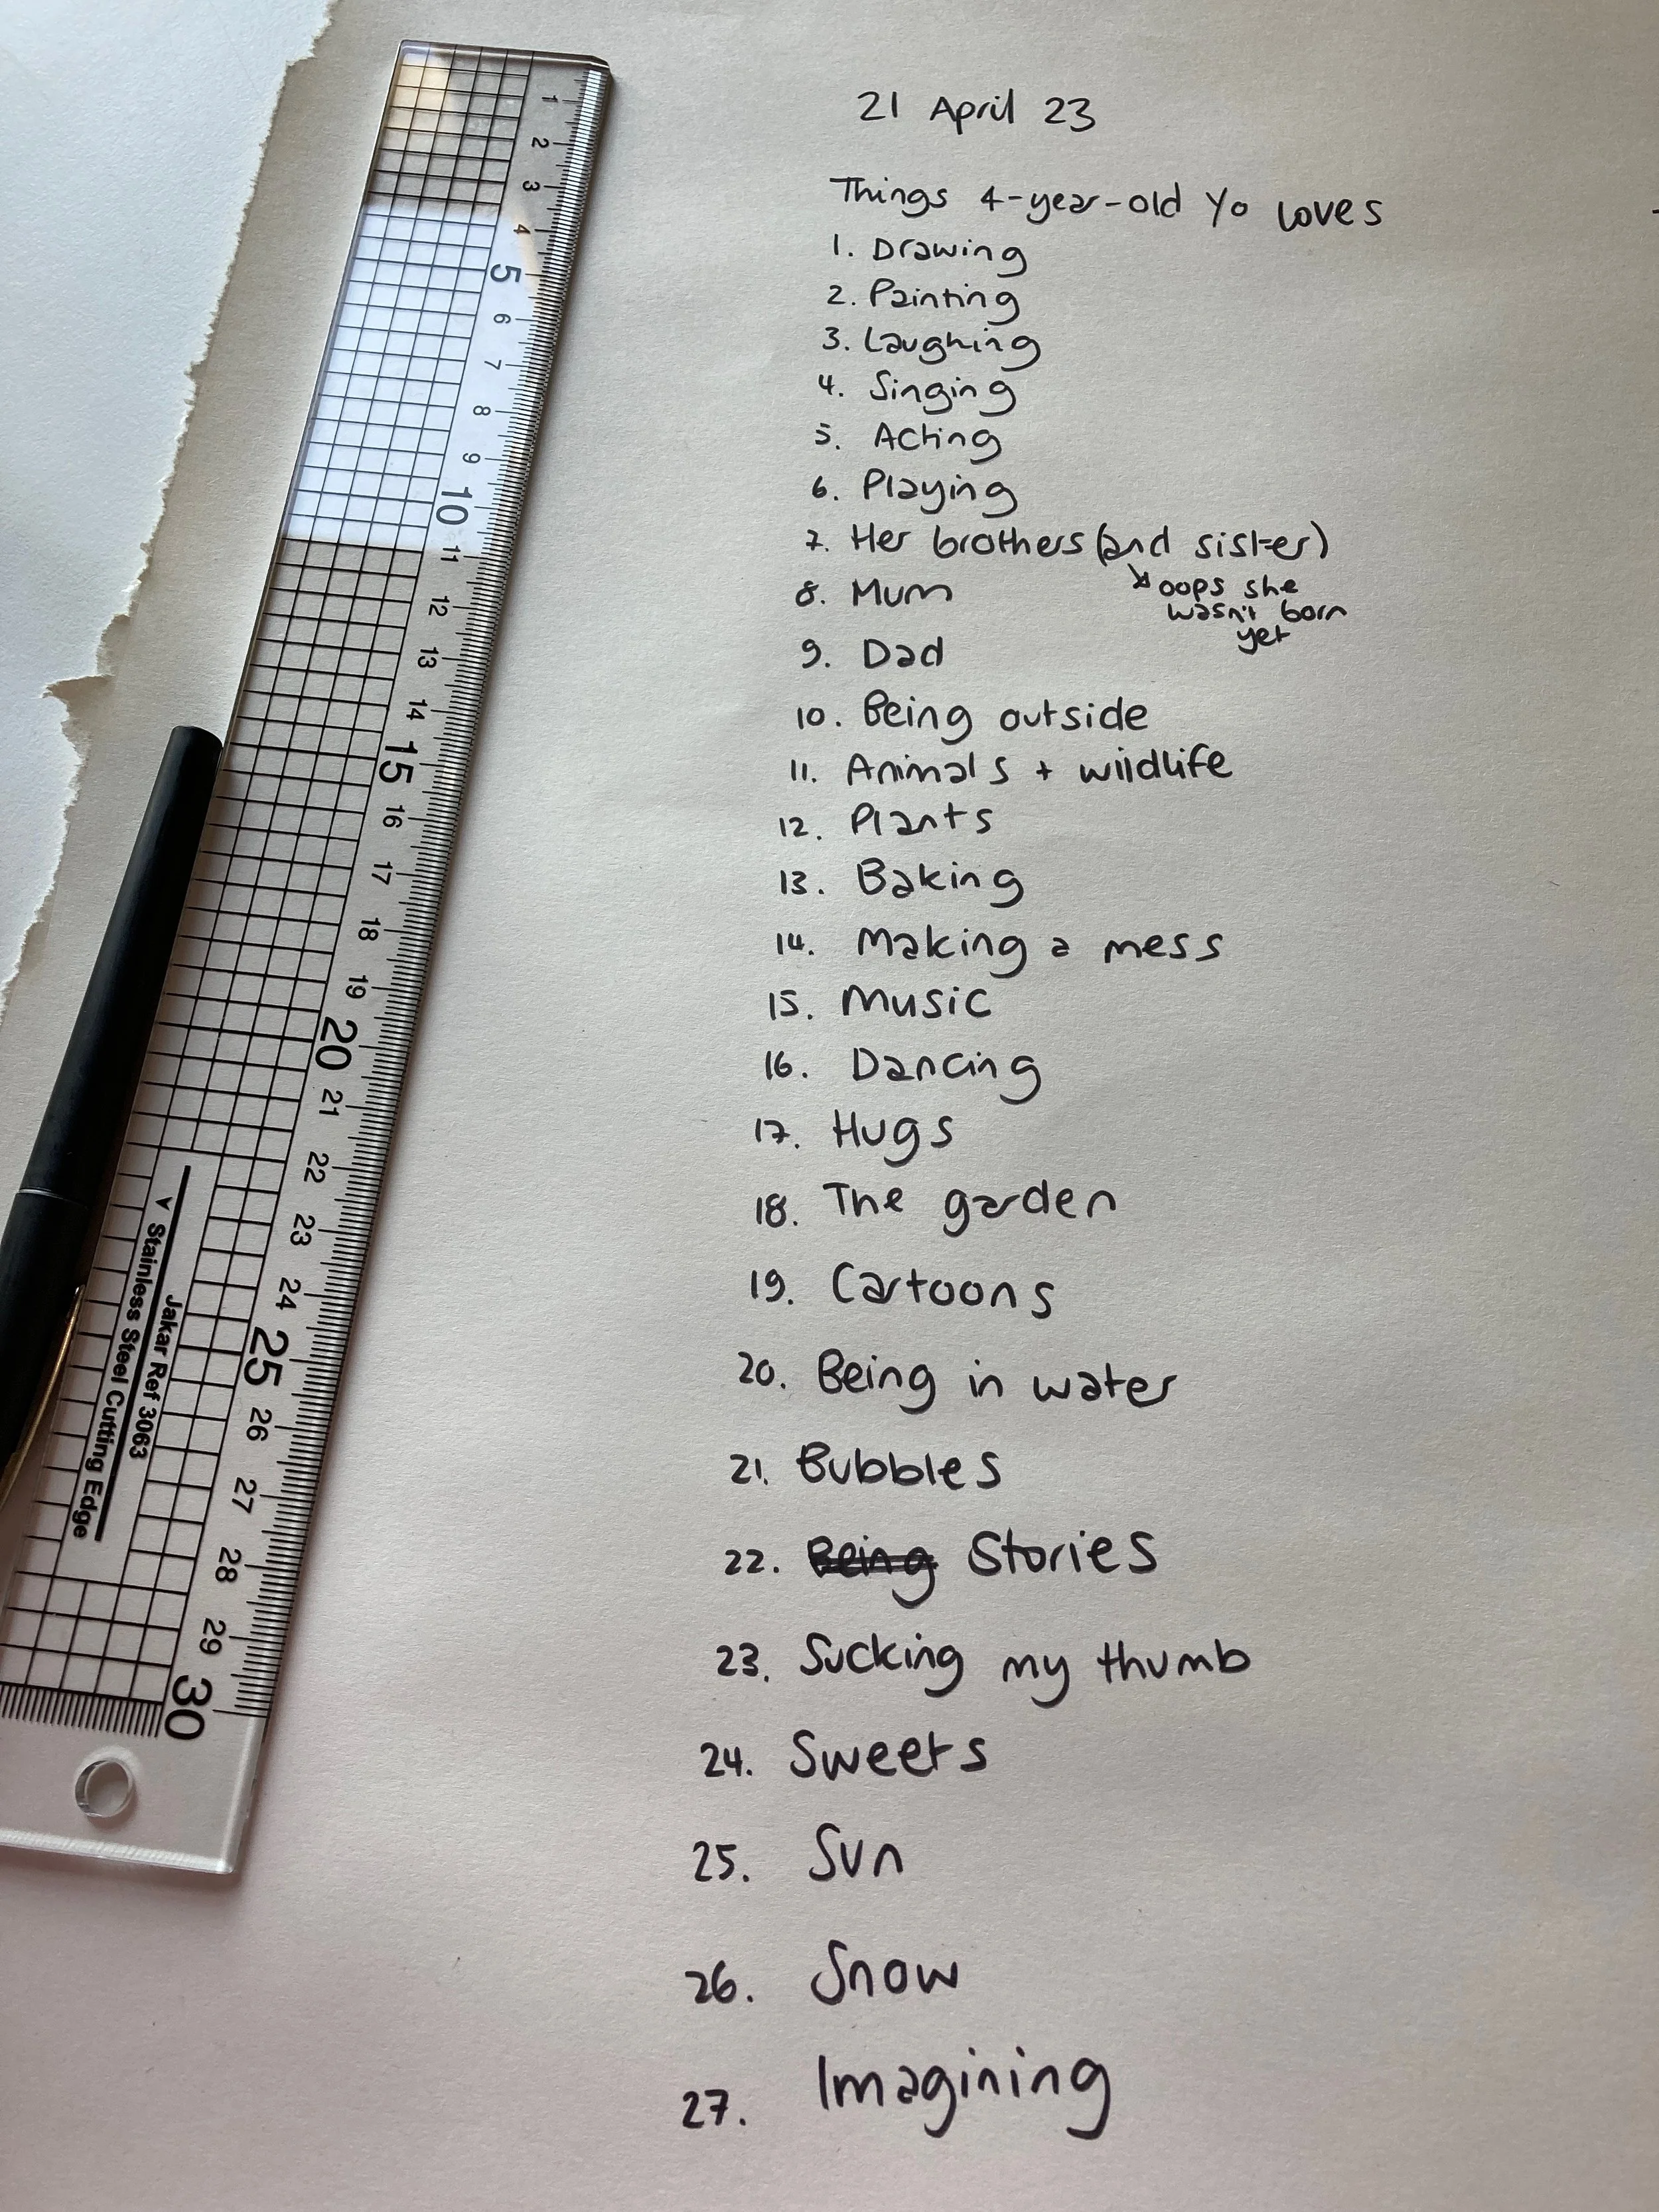 21 April 23
Things 4-year-old Yo loves
1. Drawing
2. Painting
3. Laughing
4. Singing
5. Acting
6. Playing
7. Her brothers (and sister)
oops she
wasn't born
yet
8. Mum
9. Dad
10. Being outside
11. Animals + wildlife
12. Plants
13. Baking
14. Making a mess
15. Music
16. Dancing
17. Hugs
18. The garden
19. Cartoons
20. Being in water
21. Bubbles
22. Being Stories
23. Sucking my thumb
24. Sweets
25. Sun
26. Snow
27. Imagining
1
2
3
4
5
6
7
8
9
10
11
12
13
14
15
16
17
18
19
20
21
22
23
24
25
26
27
28
29
30
Jakar Ref 3063
Stainless Steel Cutting Edge